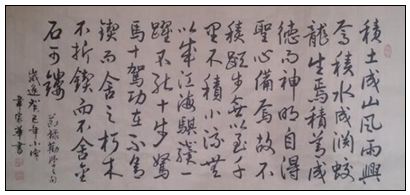 積土成山風雨興
焉積水成渊蛟
龍生焉積善成
德而神明自得
聖心備焉故不
積蹞步無以至千
里不積小流無
以成江海騏驥一
躍不能十步駑
馬十駕功在不舍
鍥而舍之朽木
不折鍥而不舍金
石可鏤
勸學
歲逢癸巳年小雪
書